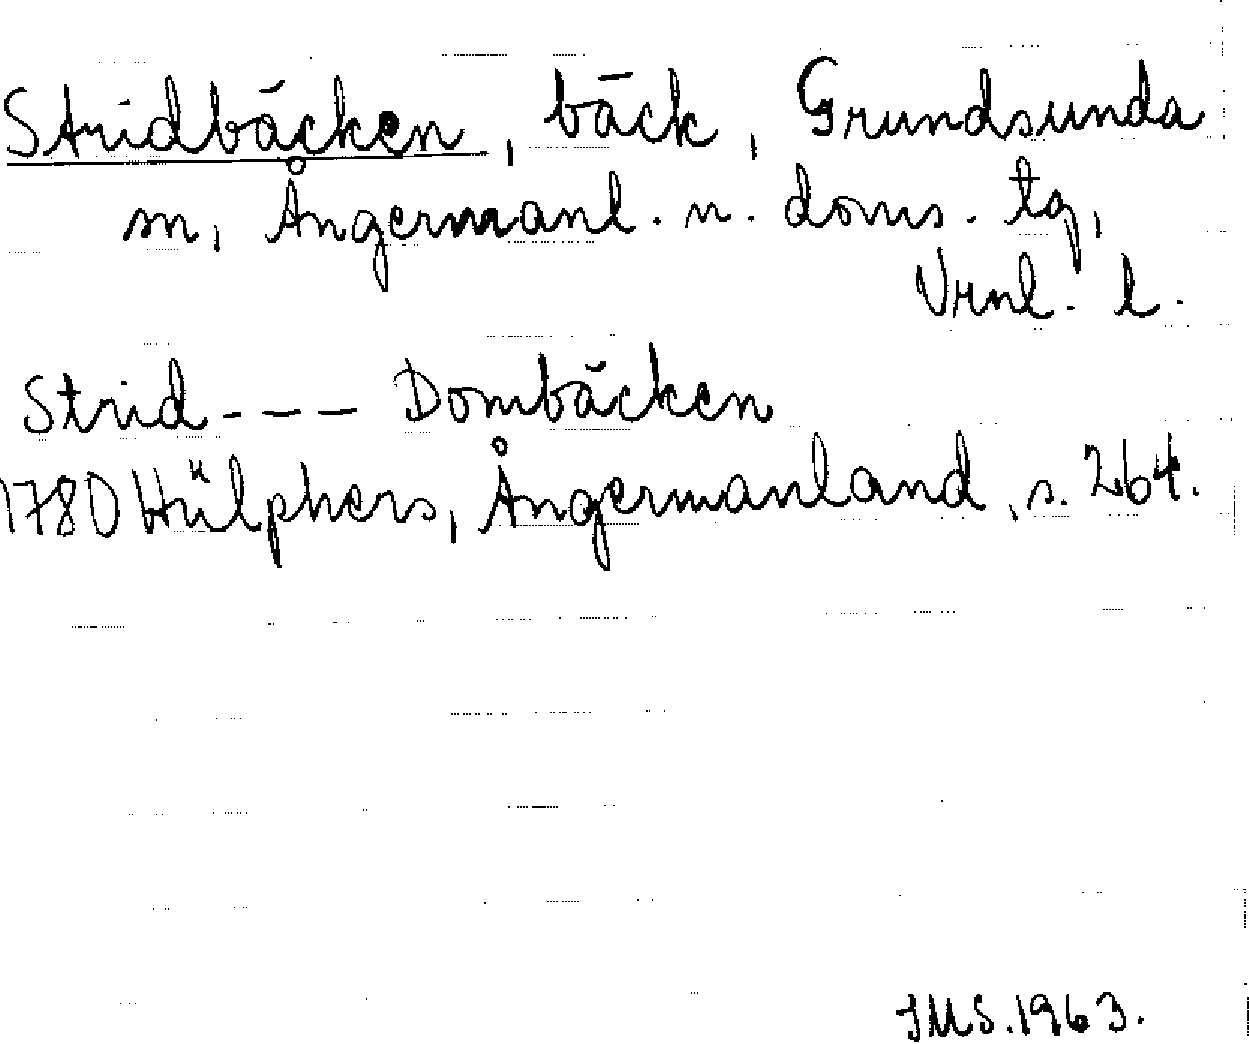 Stridbäcken, bäck, Grundsunda
sn, Ångermanl. n. doms. tg,
Vrnl. l.
Strid---- Dombäcken
1780 Hülphers, Ångermanland, s. 264.
JMS. 1963.